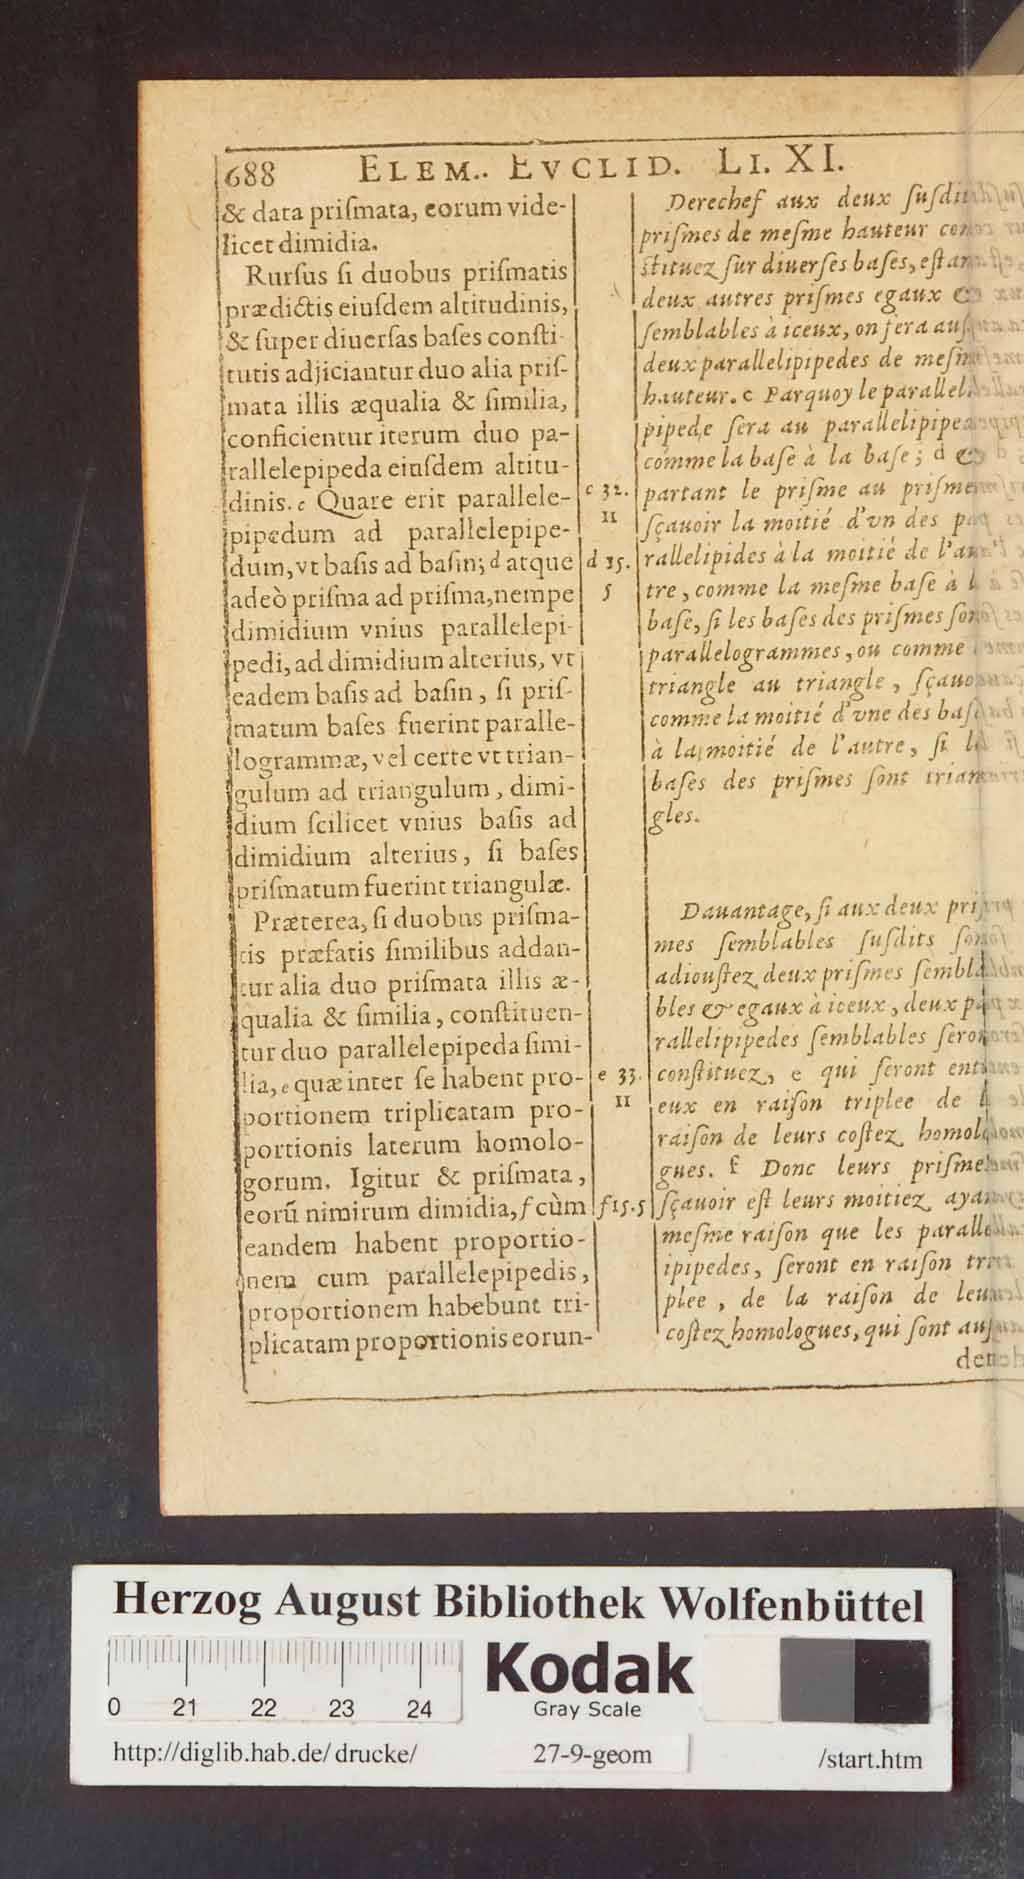 688 ELEM.. EVCLID. LI. XI.
& data priſmata, eorum vide-
licet dimidia.
Rurſus ſi duobus priſmatis
prædictis eiuſdem altitudinis,
& ſuper diuerſas baſes conſti-
tutis adjiciantur duo alia priſ-
mata illis æqualia & ſimilia,
conficientur iterum duo pa-
rallelepipeda eiuſdem altitu-
dinis. c Quare erit parallele-
pipedum ad parallelepipe-
dum, vt baſis ad baſin; d atque
adeò priſma ad priſma, nempe
dimidium vnius parallelepi-
pedi, ad dimidium alterius, vt
eadem baſis ad baſin, ſi priſ-
matum baſes fuerint paralle-
logrammæ, vel certe vt trian-
gulum ad triangulum, dimi-
dium ſcilicet vnius baſis ad
dimidium alterius, ſi baſes
priſmatum fuerint triangulæ.
Præterea, ſi duobus priſma-
tis præfatis ſimilibus addan-
tur alia duo priſmata illis æ-
qualia & ſimilia, conſtituen-
tur duo parallelepipeda ſimi-
lia, e quæ inter ſe habent pro-
portionem triplicatam pro-
portionis laterum homolo-
gorum. Igitur & priſmata,
eorũ nimirum dimidia, f cùm
eandem habent proportio-
nem cum parallelepipedis,
proportionem habebunt tri-
plicatam proportionis eorun-
c 32.
11
d 15.
5
e 33.
11
f 15. 5
Derechef aux deux
priſmes de meſme hauteur
ſtituez ſur diuerſes baſes,
deux autres priſmes egaux &
ſemblables à iceux, on fera
deux parallelipipedes de
hauteur. c Parquoy le
pipede ſera au
comme la baſe à la baſe; d &
partant le priſme au
ſçauoir la moitié d'vn des
rallelipides à la moitié de
tre, comme la meſme baſe à
baſe, ſi les baſes des priſmes
parallelogrammes, ou comme
triangle au triangle,
comme la moitié d'vne des
à la moitié de l'autre, ſi
baſes des priſmes ſont
gles.
Dauantage, ſi aux deux
mes ſemblables ſuſdits
adiouſtez deux priſmes
bles & egaux à iceux, deux
rallelipipedes ſemblables
conſtituez, e qui ſeront
eux en raiſon triplee de
raiſon de leurs coſtez
gues. f Donc leurs
ſçauoir eſt leurs moitiez
meſme raiſon que les
ipipedes, ſeront en raiſon
plee, de la raiſon de
coſtez homologues, qui ſont
Herzog August Bibliothek Wolfenbüttel
0 21 22 23 24
Kodak
Gray Scale
http://diglib.hab.de/drucke/ 27-9-geom /start.htm